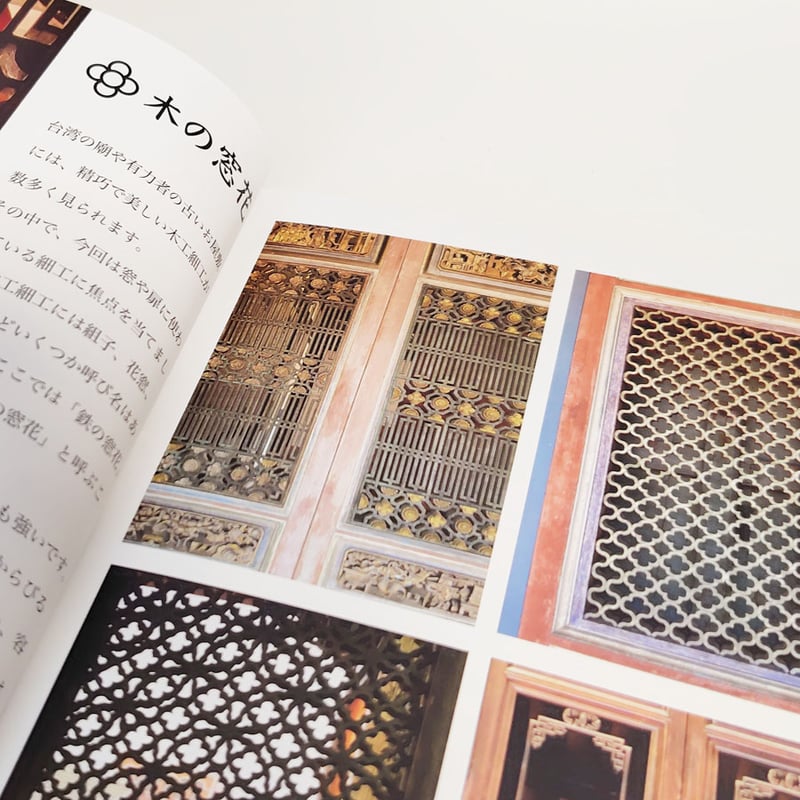 木の窓花
台湾の廟や有力者の古いお屋敷
には、精巧で美しい木工細工が
数多く見られます。
その中で、今回は窓や扉に使わ
ている細工に焦点を当てまし
工細工には組子、花窓、
どいくつか呼び名はあ
ここでは「鉄の窓花
の窓花」と呼ぶこ
も強いです。
からびる